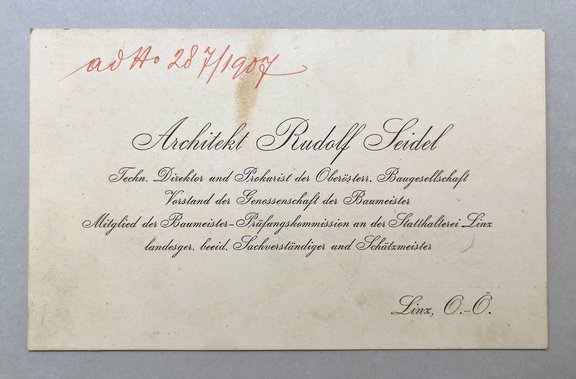 ad No 287/1907
Architekt Rudolf Seidel
Techn. Direktor und Prokurist der Oberösterr. Baugesellschaft
Vorstand der Genossenschaft der Baumeister
Mitglied der Baumeister-Prüfungskommission an der Statthalterei Linz
landesger. beeid. Sachverständiger und Schätzmeister
Linz, O.-Ö.